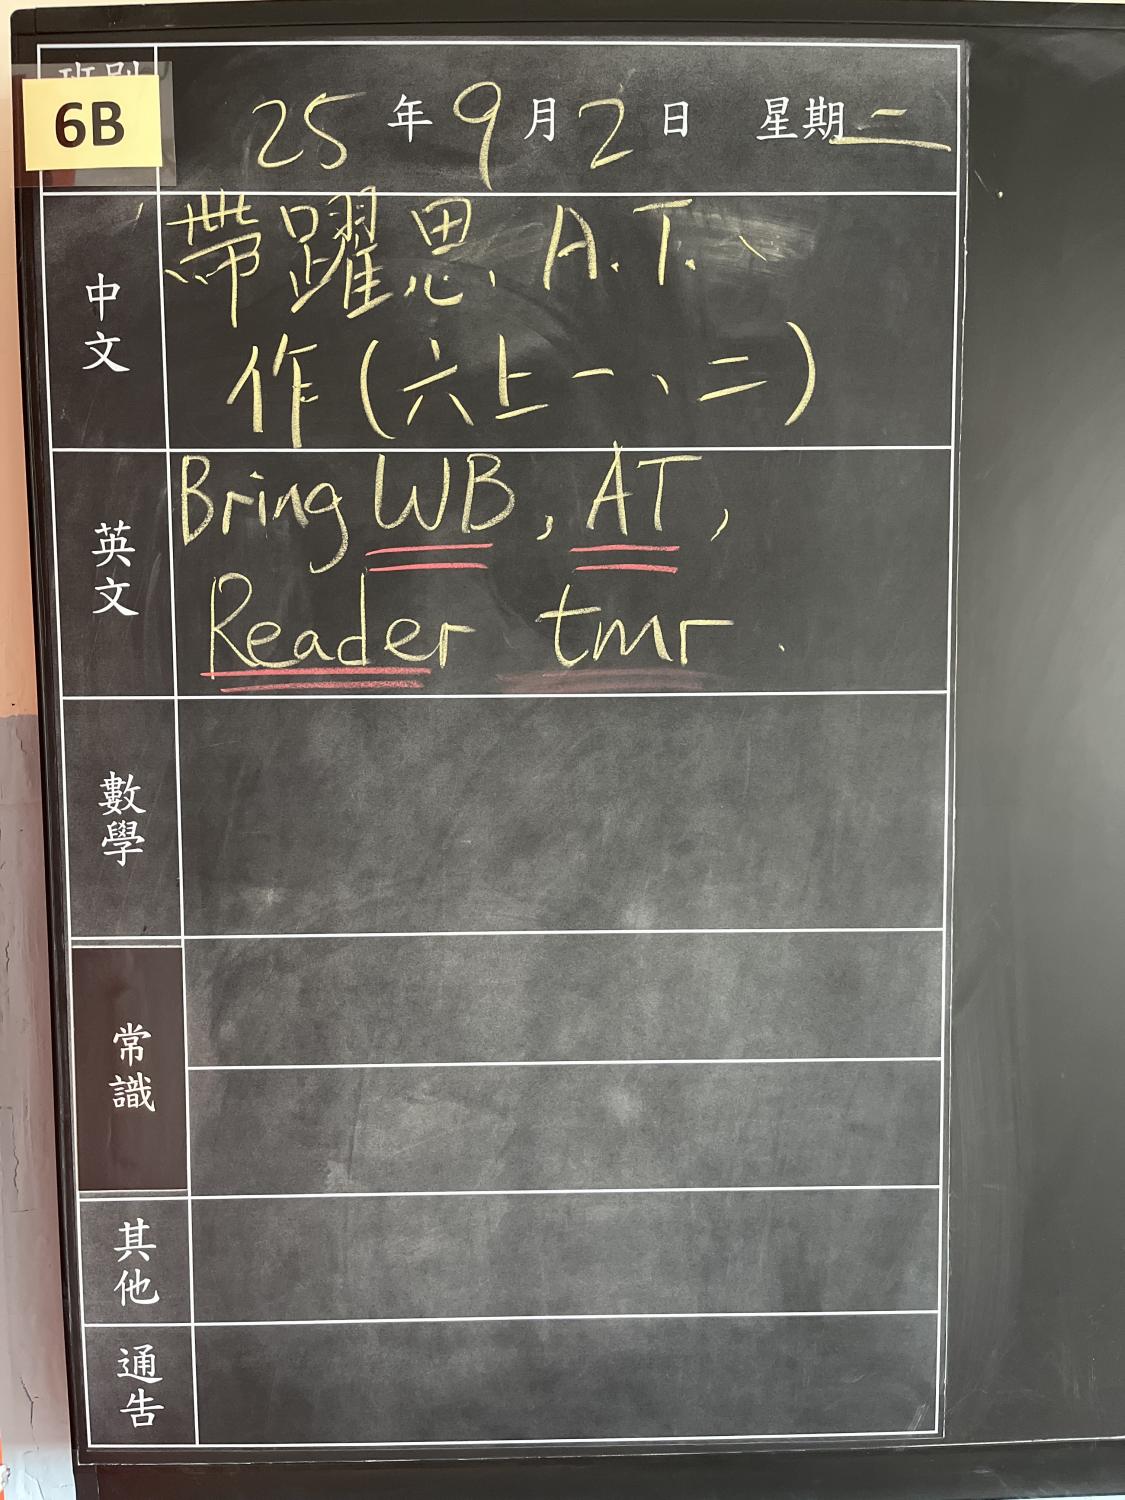 班別
6B
25年9月2日 星期二
中文
帶躍思、A.T.、
作(六上一、二)
英文
Bring WB, AT,
Reader tmr.
數學
常識
其他
通告